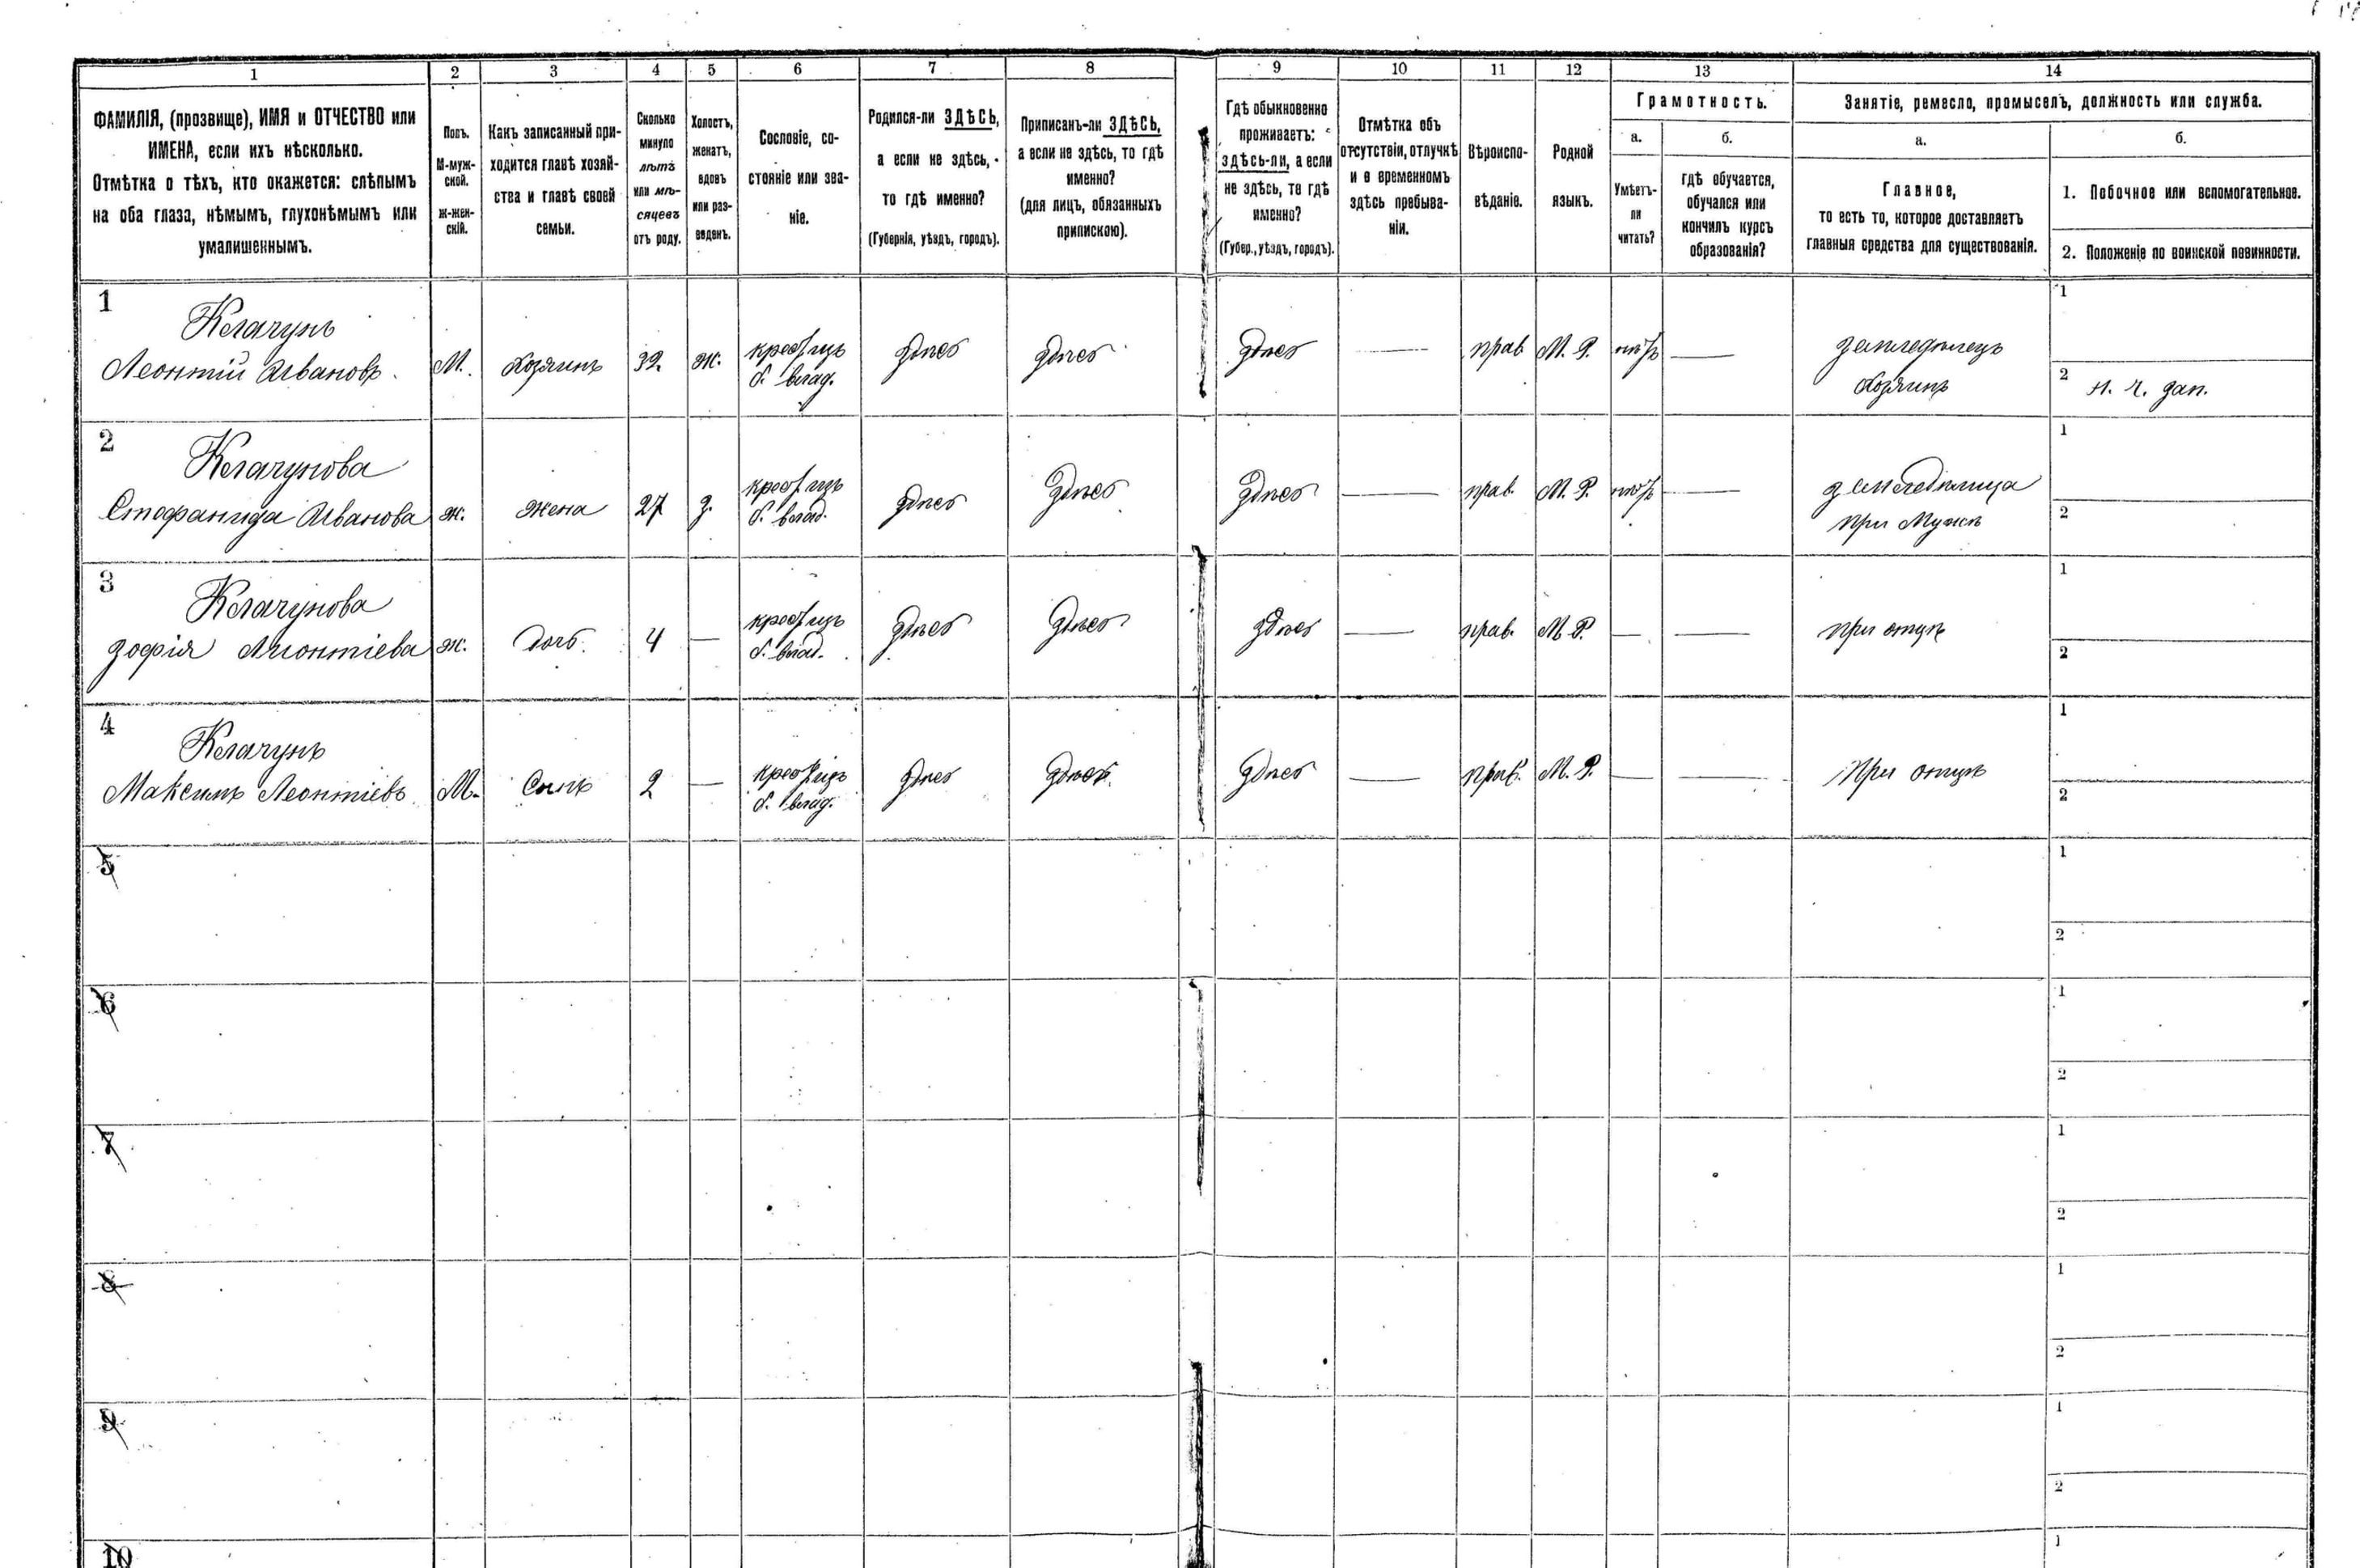 1 2 3 4 5 6 7 8 9 10 11 12 13 14
ФАМИЛІЯ, (прозвище), ИМЯ и ОТЧЕСТВО или
ИМЕНА, если ихъ нѣсколько.
Отмѣтка о тѣхъ, кто окажется: слѣпымъ
на оба глаза, нѣмымъ, глухонѣмымъ или
умалишеннымъ.
Полъ.
М-муж-
ской.
ж-жен-
скій.
Какъ записанный при-
ходится главѣ хозяй-
ства и главѣ своей
семьи.
Сколько
минуло
лѣтъ
или мѣ-
сяцевъ
отъ роду.
Холостъ,
женатъ,
вдовъ
или раз-
веденъ.
Сословіе, со-
стояніе или зва-
ніе.
Родился-ли ЗДѢСЬ,
а если не здѣсь,
то гдѣ именно?
(Губернія, уѣздъ, городъ).
Приписанъ-ли ЗДѢСЬ,
а если не здѣсь, то гдѣ
именно?
(для лицъ, обязанныхъ
припискою).
Гдѣ обыкновенно
проживаетъ:
здѣсь-ли, а если
не здѣсь, то гдѣ
именно?
(Губер., уѣздъ, городъ).
Отмѣтка объ
отсутствіи, отлучкѣ
и о временномъ
здѣсь пребыва-
ніи.
Вѣроиспо-
вѣданіе.
Родной
языкъ.
Грамотность.
а.
Умѣетъ-
ли
читать?
б.
гдѣ обучается,
обучался или
кончилъ курсъ
образованія?
Занятіе, ремесло, промыселъ, должность или служба.
а.
Главное,
то есть то, которое доставляетъ
главныя средства для существованія.
б.
1. Побочное или вспомогательное.
2. Положеніе по воинской повинности.
1
Клачунъ
Леонтій Ивановъ
М. Хозяинъ 32 ж.
б. влад.
здѣсь здѣсь здѣсь — прав М. Р. нѣтъ —
земледѣлецъ
Хозяинъ
1
2
2
Клачунова
Стефанида Иванова
ж. Жена 27 з.
б. влад.
здѣсь здѣсь здѣсь — прав. М. Р. нѣтъ —
земледѣлица
при Мужѣ
1
2
3
Клачунова
Зофія Леонтіева
ж. Дочь 4 —
б. влад.
здѣсь здѣсь здѣсь — прав. М. Р. — —
при отцѣ
1
2
4
Клачунъ
Максимъ Леонтіевъ
М. Сынъ 2 —
б. влад.
здѣсь здѣсь здѣсь — прав. М. Р. — —
При отцѣ
1
2
5
1
2
6
1
2
7
1
2
8
1
2
9
1
2
10
1